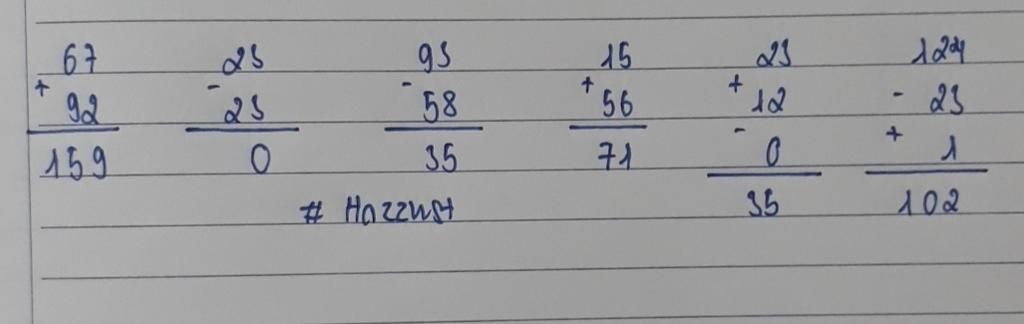 67 23 93 15 23 124
+ - - + + - 
92 23 58 56 12 23
- + 
0 1
159 0 35 71
35 102
# Hazzust